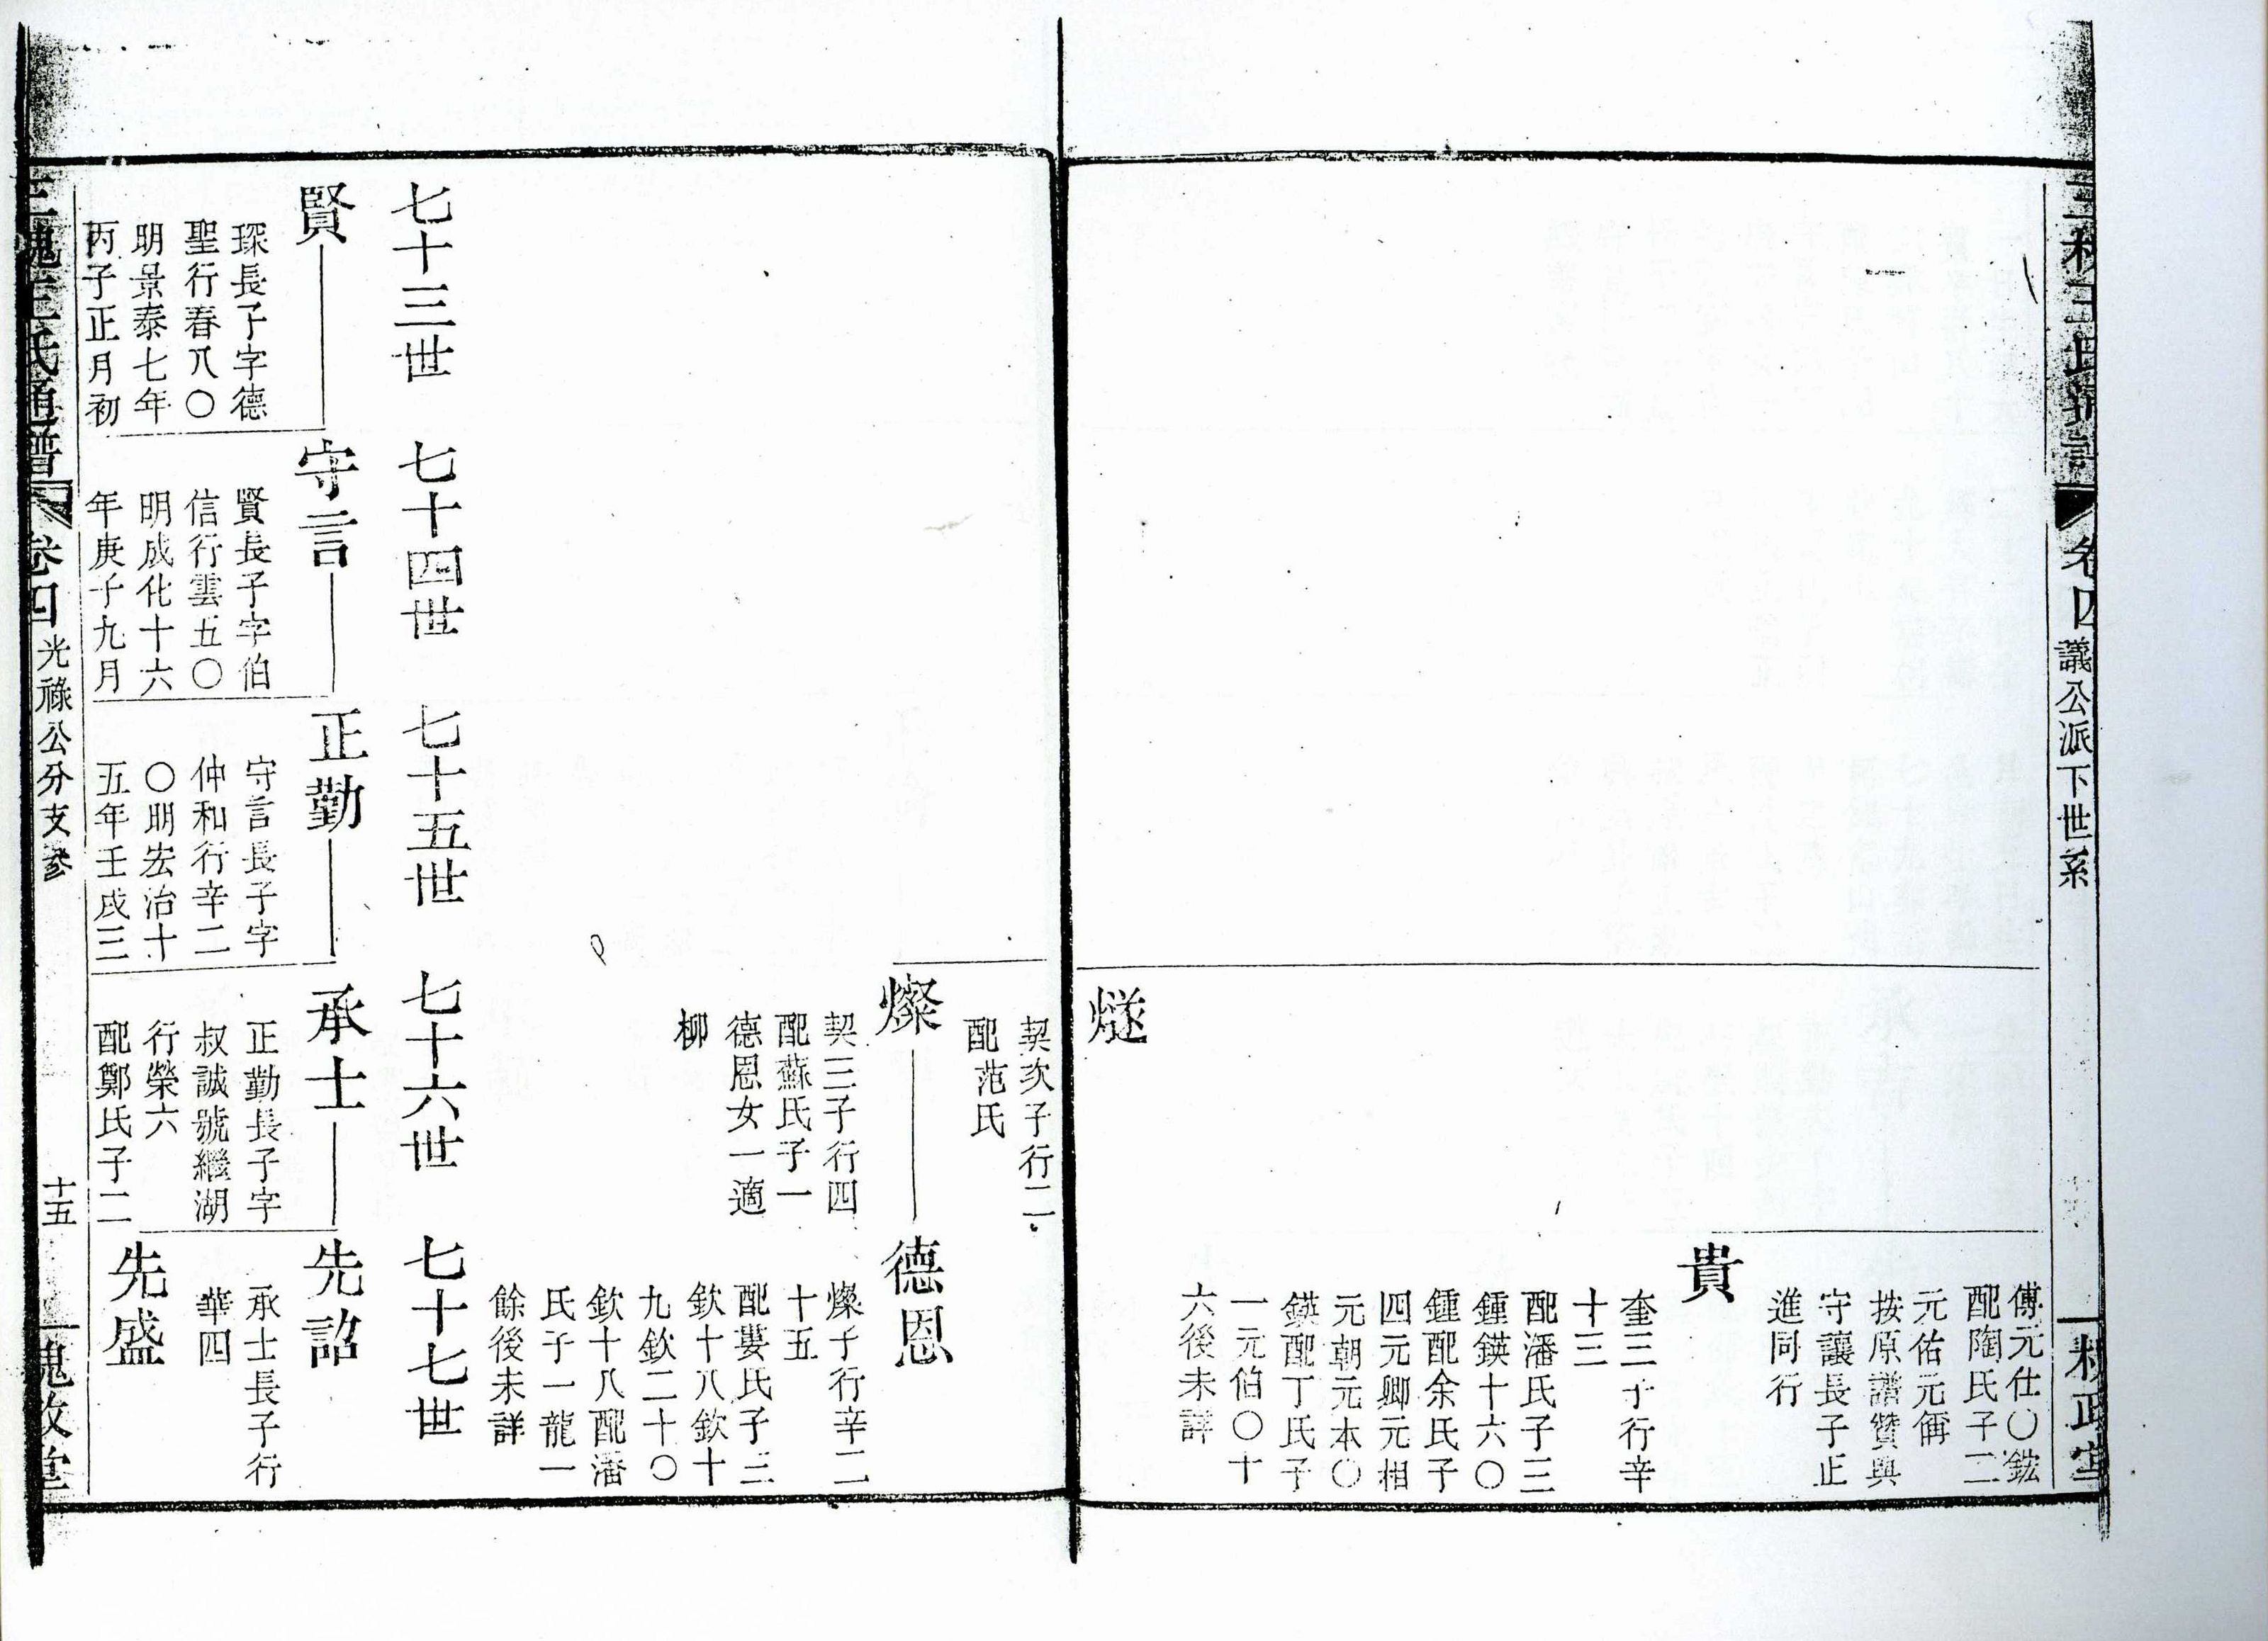 三槐王氏通譜
卷四
議公派下世系
三槐堂
傅元仕〇鋐
配陶氏子二
元佑元偁
按原譜贊與
守讓長子正
進同行
貴
奎三子行辛
十三
配潘氏子三
鍾鍈十六〇
鍾配余氏子
四元卿元相
元朝元本〇
鍈配丁氏子
一元伯〇十
六後未詳
燧
契次子行二
配范氏
燦
契三子行四
配蘇氏子一
德恩女一適
柳
德恩
燦子行辛二
十五
配婁氏子三
欽十八欽十
九欽二十〇
欽十八配潘
氏子一龍一
餘後未詳
七十三世
七十四世
七十五世
七十六世
七十七世
賢
琛長子字德
聖行春八〇
明景泰七年
丙子正月初
守言
賢長子字伯
信行雲五〇
明成化十六
年庚子九月
正勤
守言長子字
仲和行辛二
〇明宏治十
五年壬戌三
承士
正勤長子字
叔誠號繼湖
行榮六
配鄭氏子二
先詔
承士長子行
華四
先盛
三槐王氏通譜
卷四
光祿公分支參
十五
三槐堂